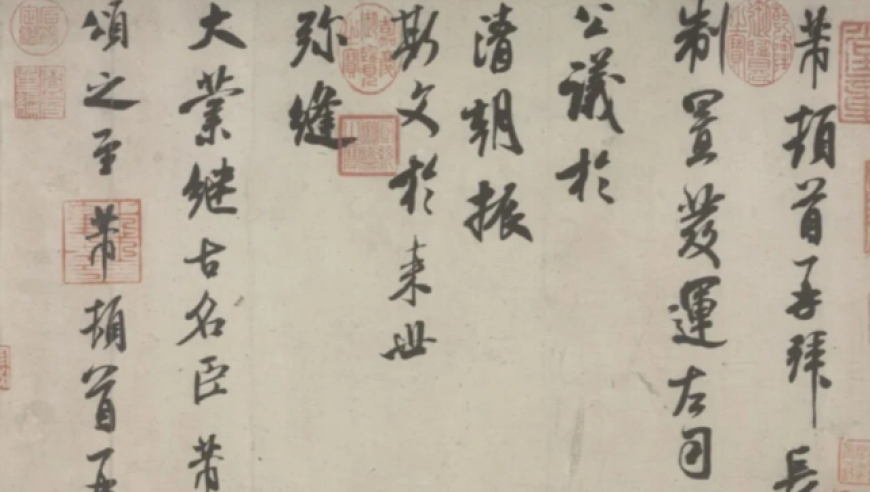 芾頓首再拜長
制置發運左司
公議於
清朝振
斯文於来世
弥縫
大業継古名臣芾
頌之至芾頓首再